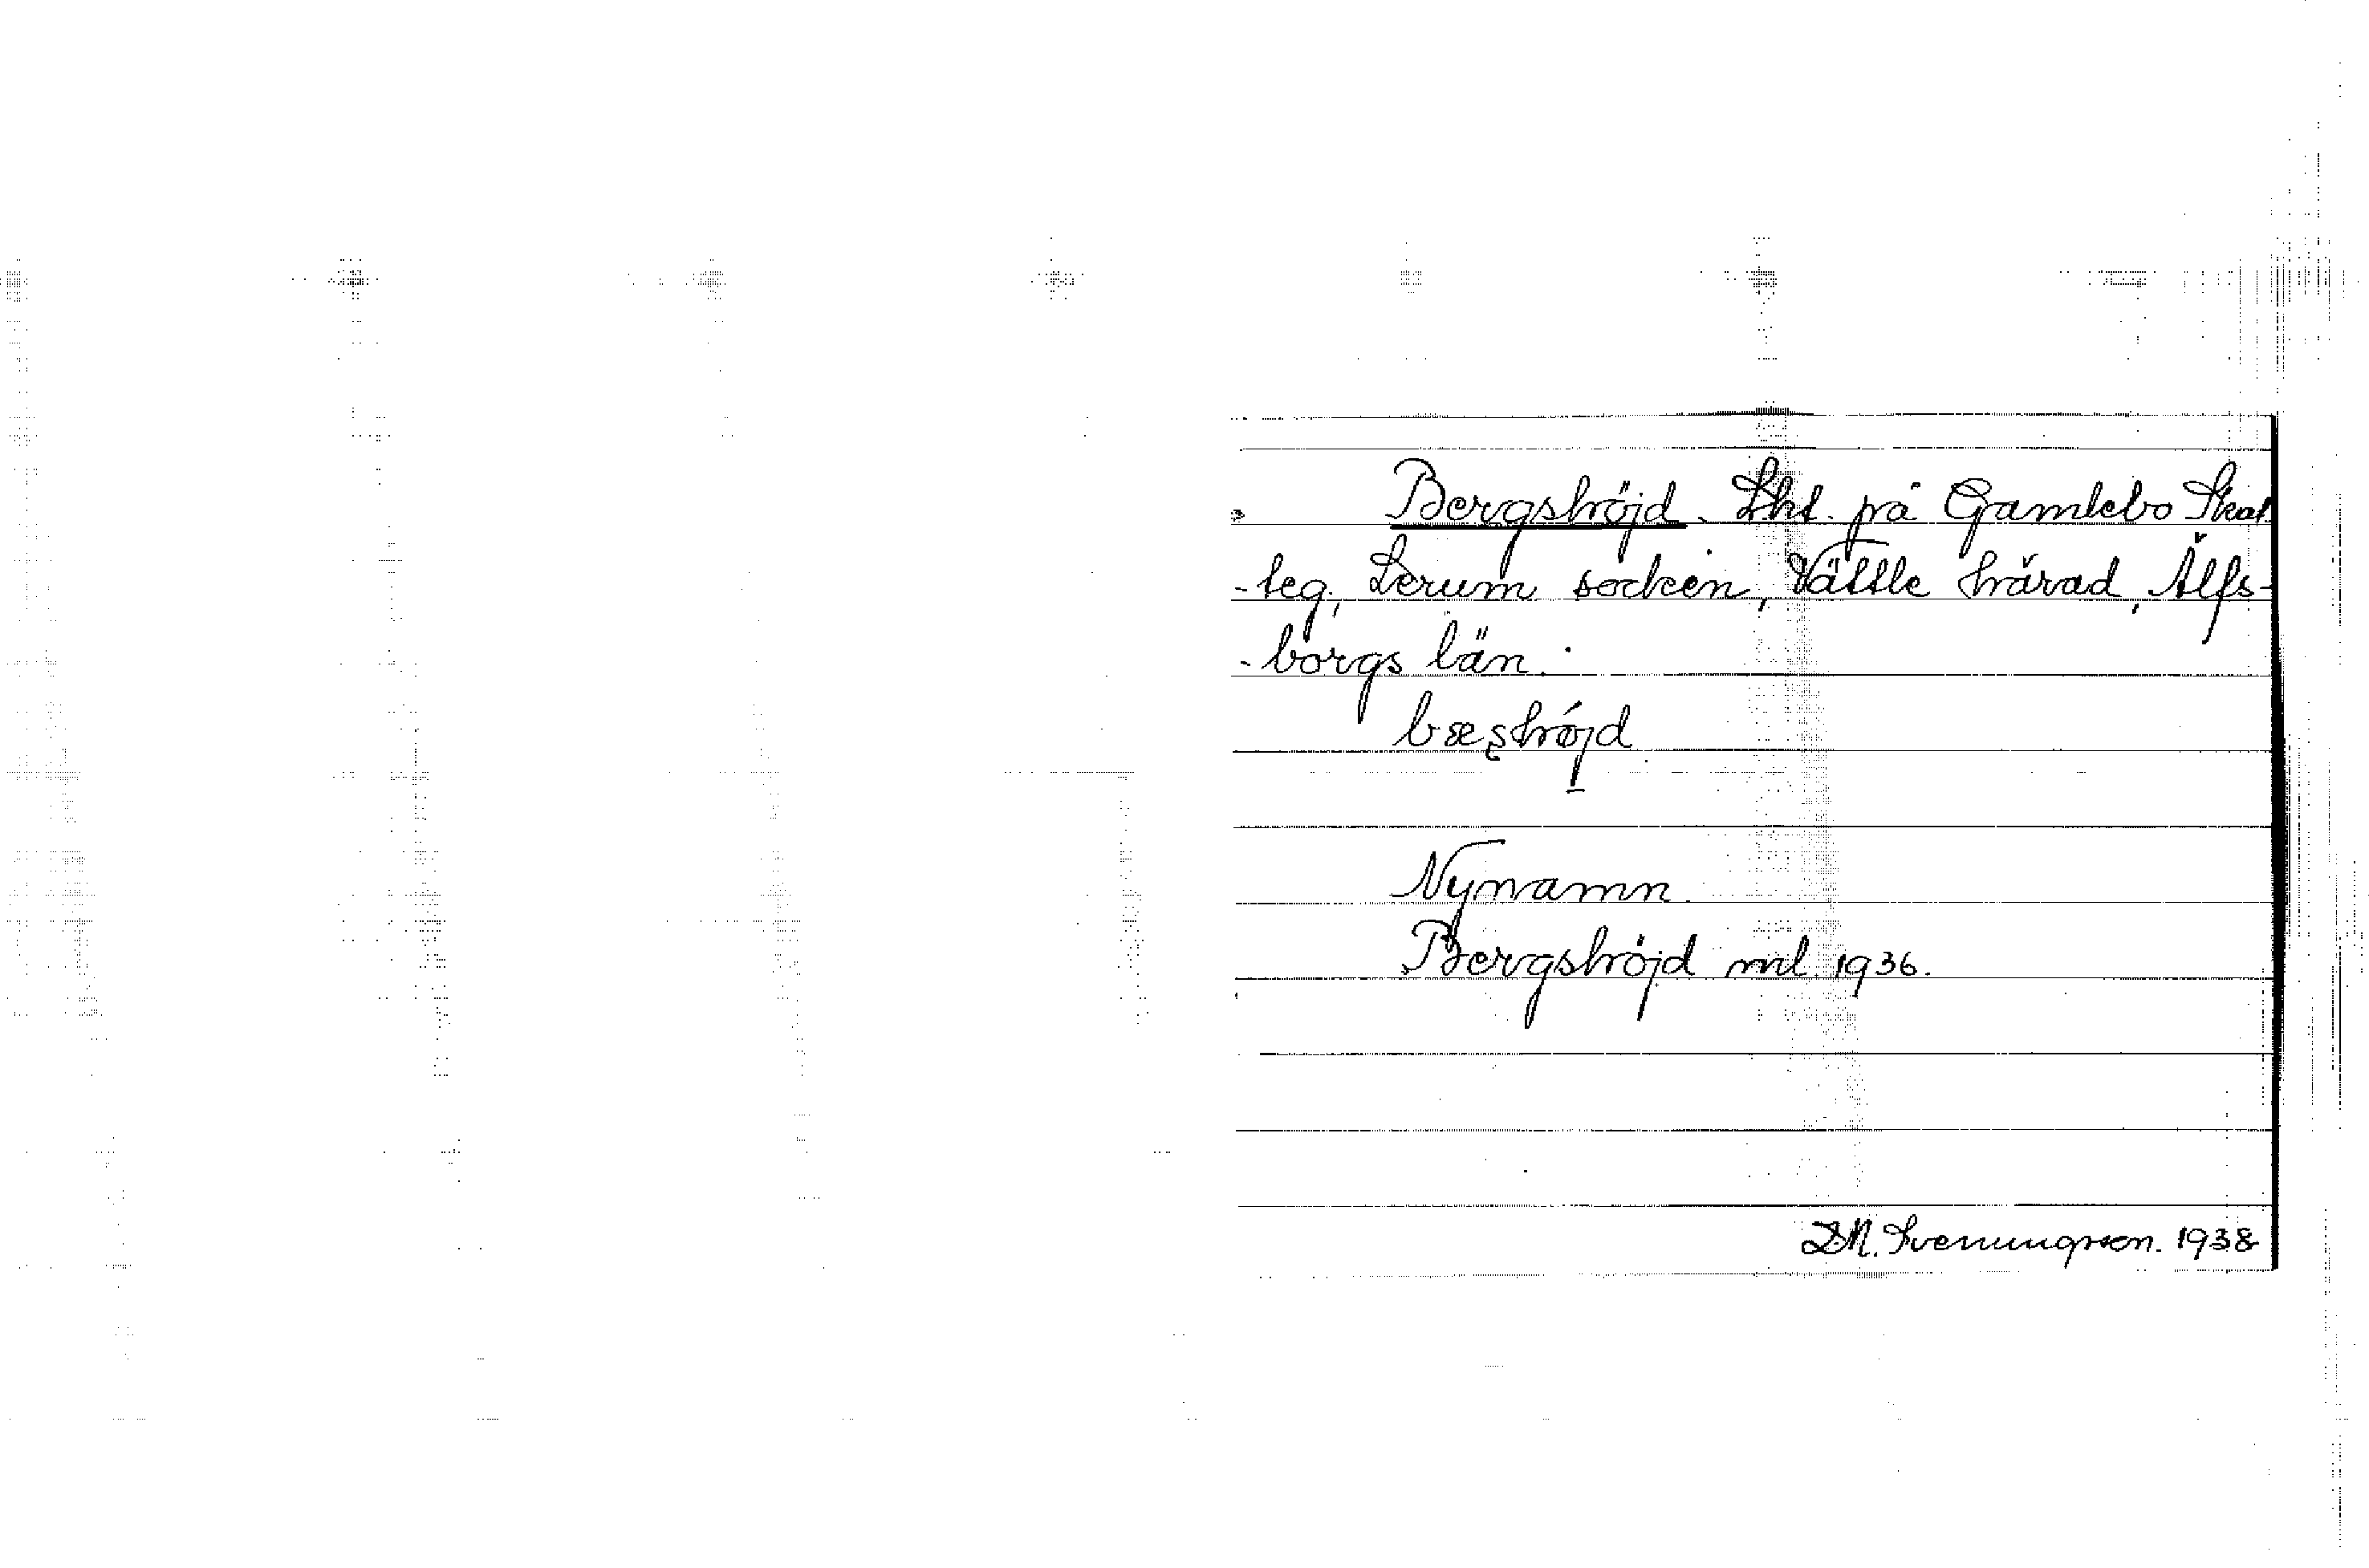 Bergshöjd. Lht. på Gamlebo Skat
-teg, Lerum socken, Vättle härad, Älfs-
-borgs län.
bæʂhöjd
Nynamn.
Bergshöjd ml. 1936.
D.N. Svenungsson. 1938